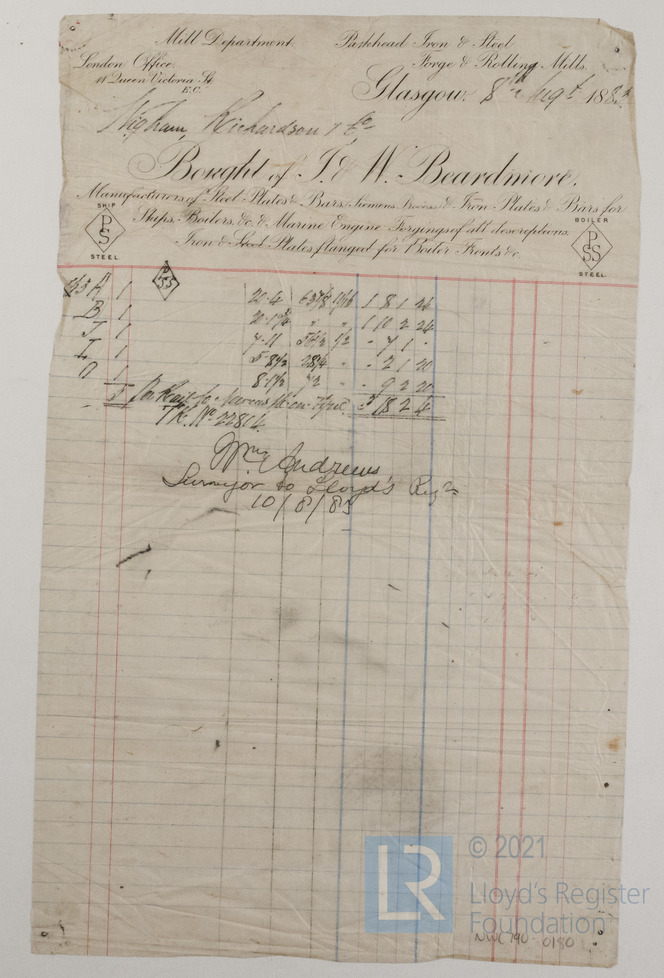 Mill Department. Parkhead Iron & Steel
London Office. Forge & Rolling Mills.
11 Queen Victoria St.
E.C.
Glasgow, 8th Augt 188
Wigham, Richardson & Co
Bought of J. & W. Beardmore,
Manufacturers of Steel Plates & Bars, Siemens Process & Iron Plates & Bars for
Ships, Boilers, &c. & Marine Engine Forgings of all descriptions.
Iron & Steel Plates flanged for Boiler Fronts &c.
SHIP
P
S
STEEL.
BOILER
P
SS
STEEL.
A 1 20.4 63 7/8 1 8 1 24
B 1 1 10 2 24
J 1 7.11 - 7 1 -
I 1 5.8 1/2 28 1/4 - - 2 1 20
O 1 8.1 1/2 - 9 2 20
5 18 2 4
No 22814
Wm Andrews
Surveyor to Lloyd's Regr
10/8/85
LR
© 2021
Lloyd's Register
Foundation
NWC790-0180